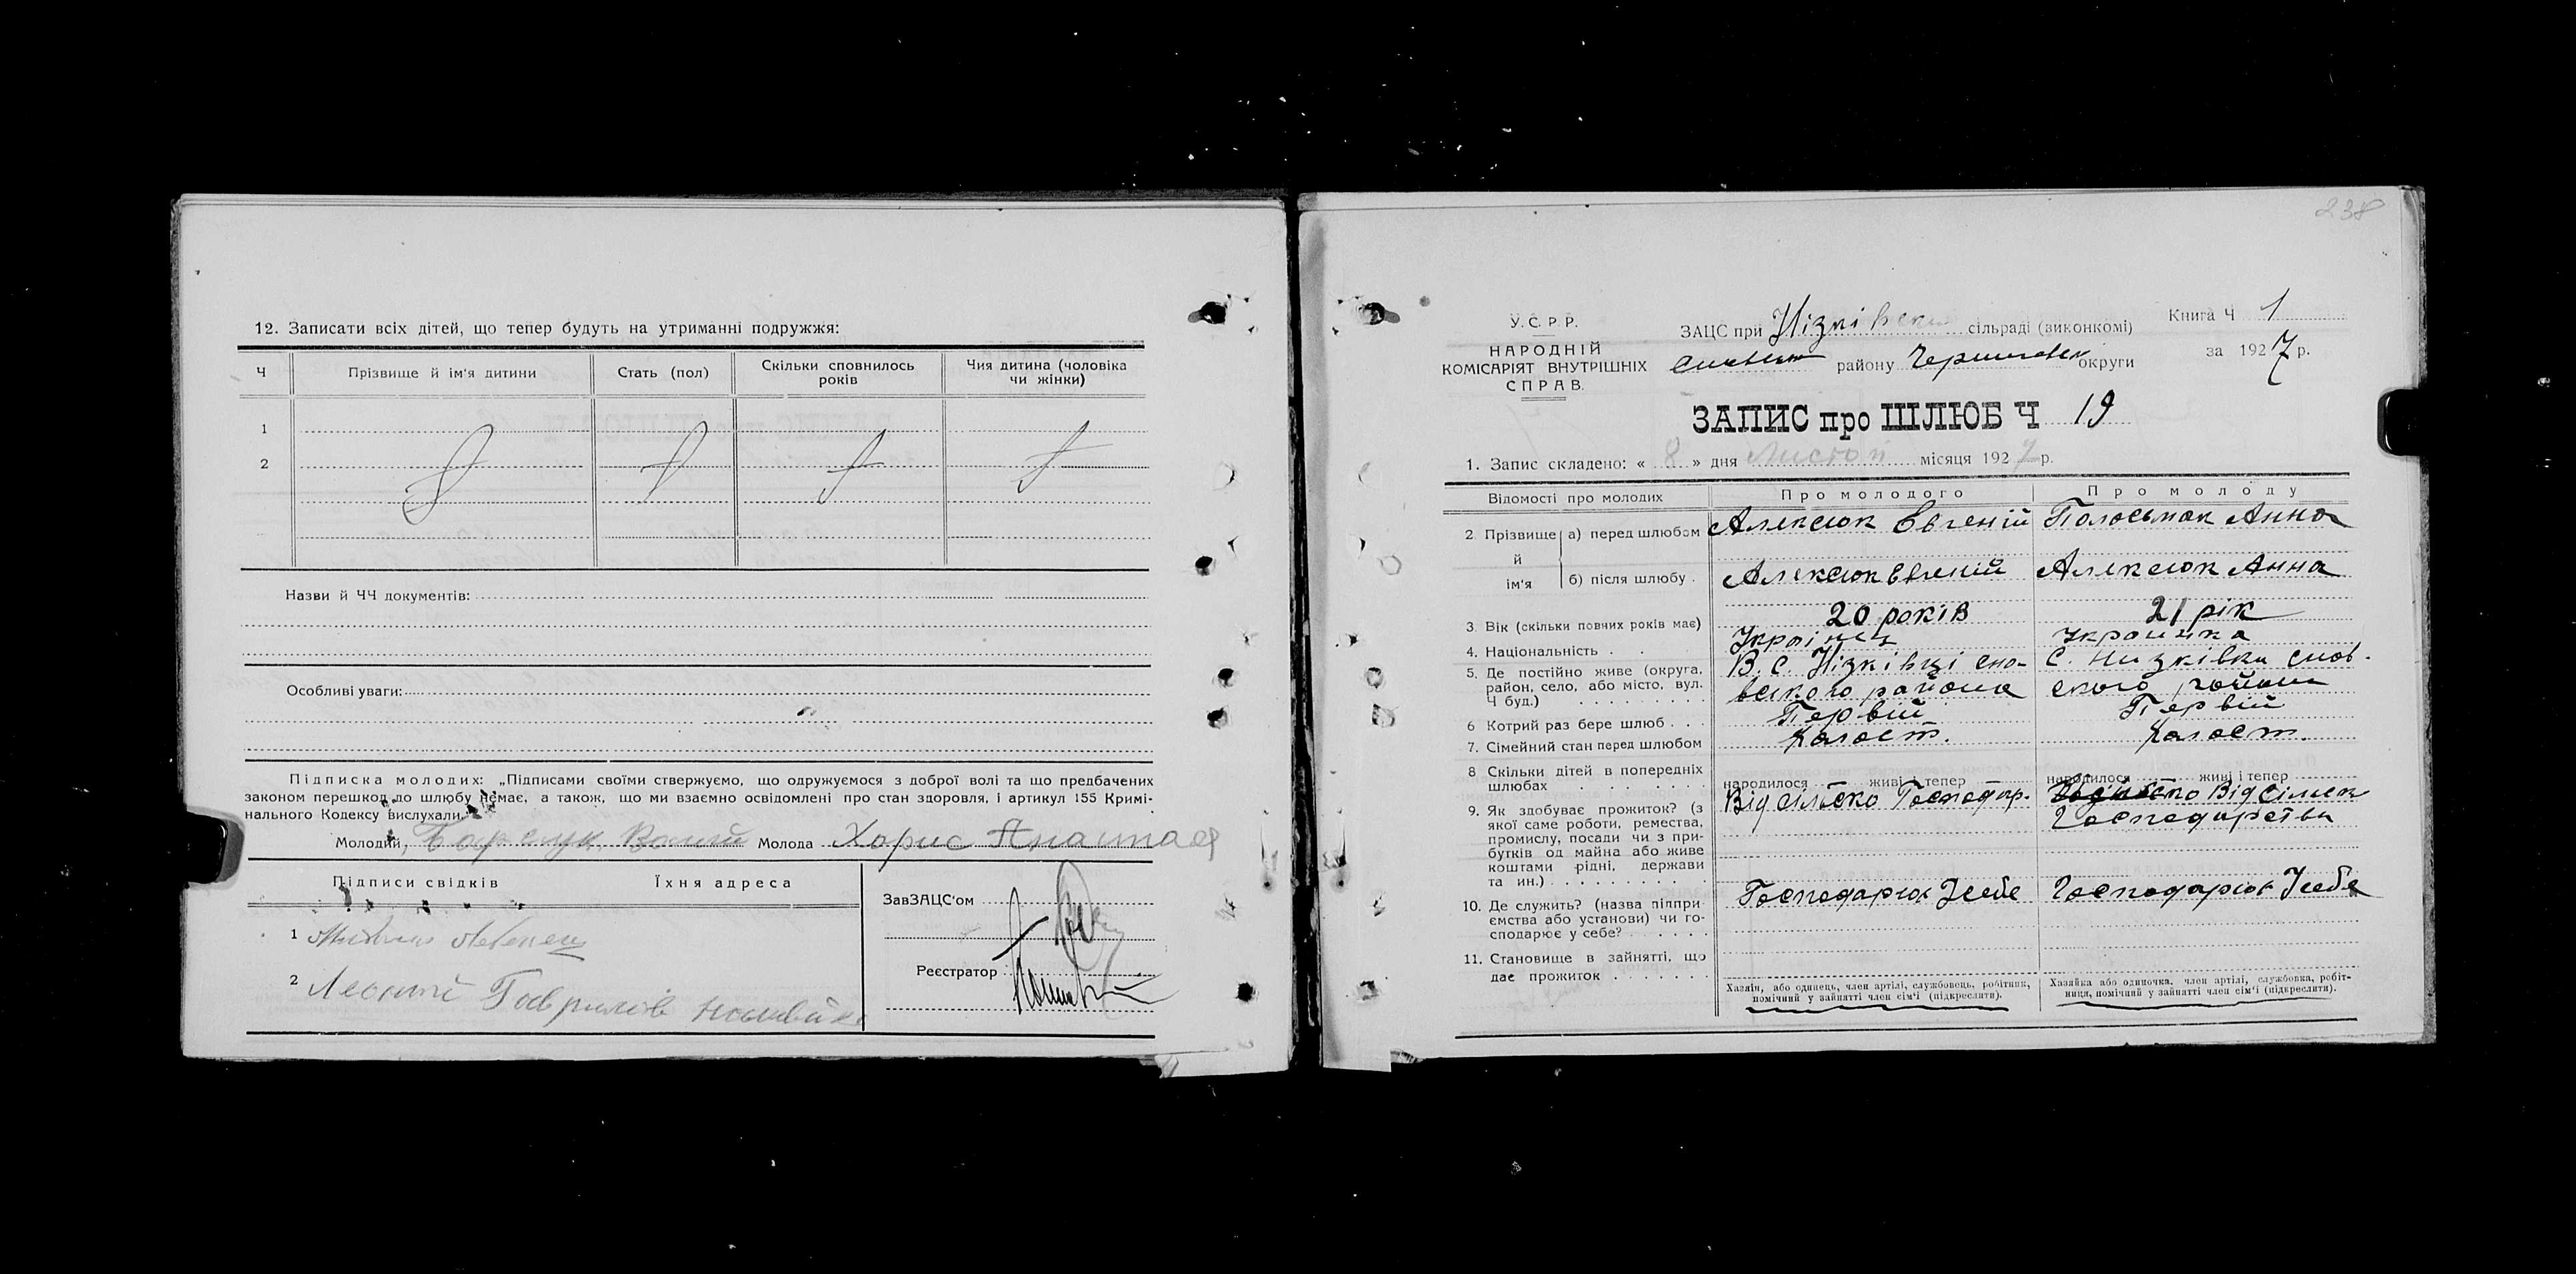 12. Записати всіх дітей, що тепер будуть на утриманні подружжя:
Ч Прізвище й ім'я дитини Стать (пол) Скільки сповнилось років Чия дитина (чоловіка чи жінки)
1
2
Назви й ЧЧ документів:
Особливі уваги:
Підписка молодих: „Підписами своїми стверджуємо, що одружуємося з доброї волі та що предбачених
законом перешкод до шлюбу немає, а також, що ми взаємно освідомлені про стан здоровля, і артикул 155 Кримі-
нального Кодексу вислухали.
Молодий, Молода Хорис Анастася
Підписи свідків Їхня адреса
ЗавЗАЦС'ом
1
Реєстратор
2 Леонтій Гаврилов
238
У.С.Р.Р.
НАРОДНІЙ
КОМІСАРІЯТ ВНУТРІШНІХ
СПРАВ.
ЗАЦС при Нізківскі сільраді (виконкомі)
району округи
Книга Ч 1
за 1927 р.
ЗАПИС про ШЛЮБ Ч 19
1. Запис складено: « 8 » дня Листоп місяця 1927 р.
Відомості про молодих Про молодого Про молоду
2 Прізвище й ім'я а) перед шлюбом Алексюк Евгеній Полосьмак Анна
б) після шлюбу. Алексюк Евгеній Алексюк Анна
3. Вік (скільки повних років має) 20 років 21 рік
4. Національність . . Українец Украинка
5. Де постійно живе (округа, В. С. Нізківці сно- С. Низківки снов-
район, село, або місто, вул. вського района ского район
Ч буд.)
6 Котрий раз бере шлюб . . . Первій Первій
7. Сімейний стан перед шлюбом Холост. Холост.
8 Скільки дітей в попередніх
шлюбах народилося живі і тепер народилося живі і тепер
9. Як здобуває прожиток? (з Від сільско Господар. Від сільск
якої саме роботи, ремества, Господарства
промислу, посади чи з при-
бутків од майна або живе
коштами рідні, держави
та ин.)
10. Де служить? (назва підпри- Господарює Усебе Господарює Усебе
ємства або установи) чи го-
сподарює у себе?
11. Становище в зайнятті, що
дає прожиток
Хазяін, або одинець, член артілі, службовець, робітник,
помічний у зайнятті член сім'ї (підкреслити).
Хазяйка або одиночка, член артілі, службовка, робіт-
ниця, помічний у зайнятті член сім'ї (підкреслити).